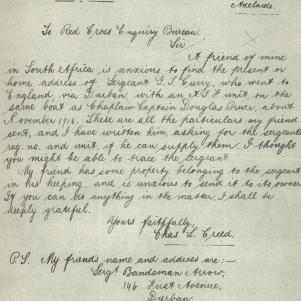 Adelaide.
To Red Cross Enquiry Bureau.
Sir
A friend of mine
in South Africa is anxious to find the present or
home address of Sergeant G. S. Curry, who went to
England, via Durban, with an A.I.F. unit, on the
same boat as Chaplain-Captain Douglas Bruce, about
November 1916. These are all the particulars my friend
sent, and I have written him, asking for the sergeants
reg. no. and unit, if he can supply them. I thought
you might be able to trace the sergeant.
My friend has some property belonging to the sergeant
in his keeping, and is anxious to send it to its owner.
If you can do anything in the matter, I shall be
deeply grateful.
Yours faithfully,
Chas L. Creed.
P.S. My friends name and address are:-
Sergt Bandsman Arrow,
146 First Avenue,
Durban.